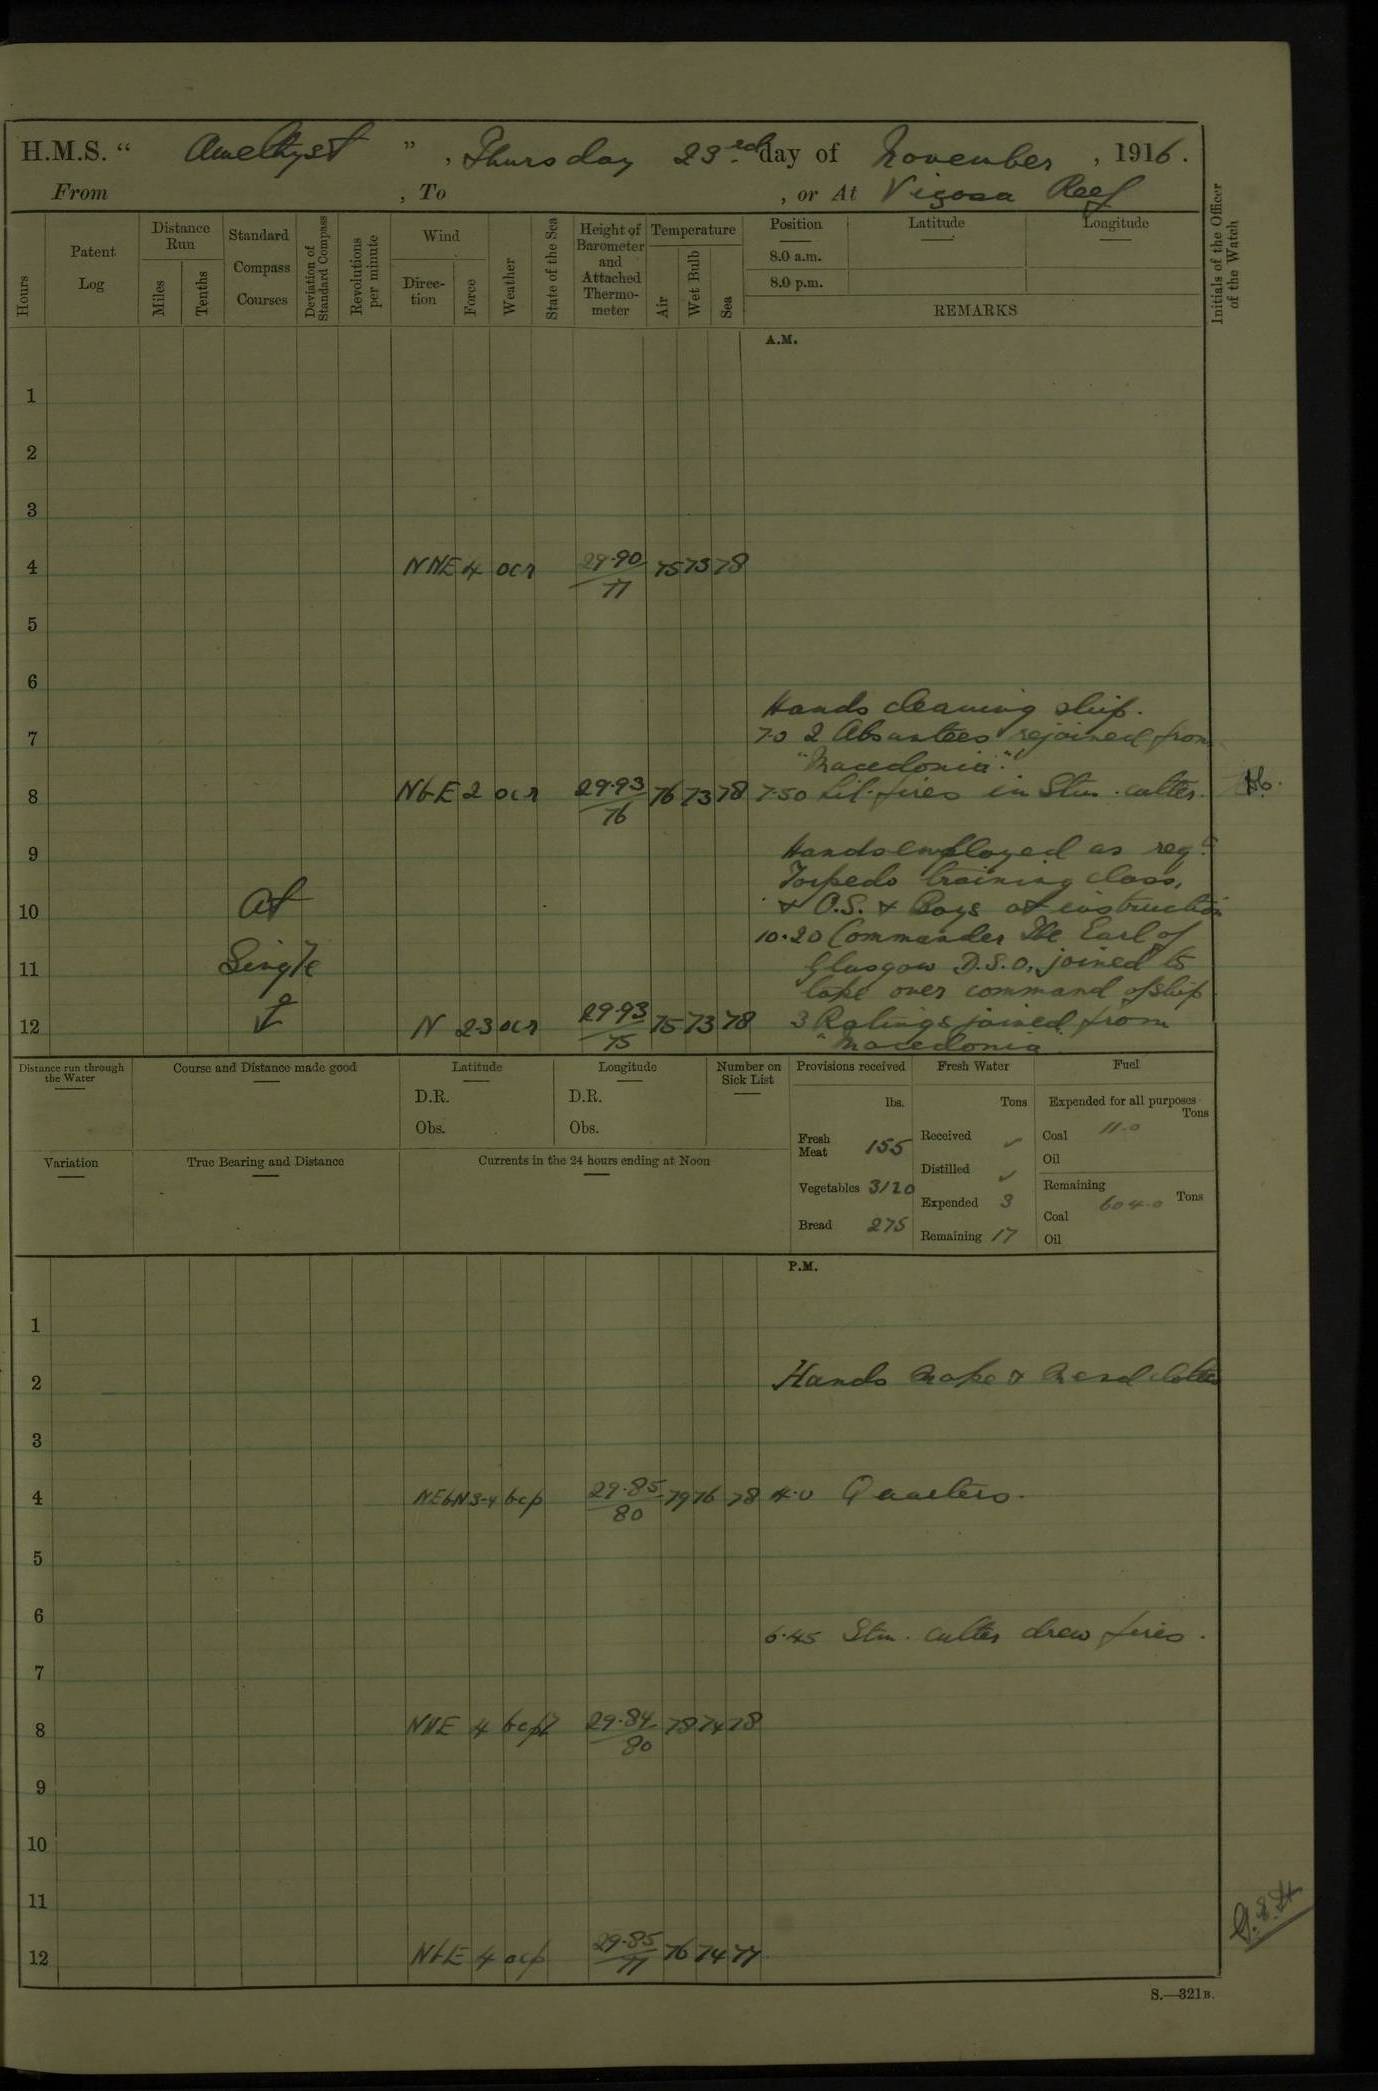 H.M.S. " Amethyst ", Thursday 23rd day of November, 1916.
From , To , or At Vigosa Reef
Hours
Patent Log
Distance Run
Miles
Tenths
Standard Compass Courses
Deviation of Standard Compass
Revolutions per minute
Wind
Direction
Force
Weather
State of the Sea
Height of Barometer and Attached Thermometer
Temperature
Air
Wet Bulb
Sea
Position
Latitude
Longitude
8.0 a.m.
8.0 p.m.
REMARKS
Initials of the Officer of the Watch
A.M.
1
2
3
4 NNE 4 ocr 29.90/77 75 73 78
5
6
Hands cleaning ship.
7 7.0 2 Absentees rejoined from
"Macedonia".
8 NbE 2 ocr 29.93/76 76 73 78 7.50 Lit fires in Stm. cutter.
Hands employed as reqd
9
Torpedo training class,
10 At & O.S. & Boys at instruction
10.20 Commander The Earl of
11 Single Glasgow D.S.O. joined to
take over command of ship
12 N 2-3 ocr 29.93/75 75 73 78 3 Ratings joined from
"Macedonia
Distance run through the Water
Course and Distance made good
Latitude
D.R.
Obs.
Longitude
D.R.
Obs.
Number on Sick List
Provisions received
lbs.
Fresh Meat 155
Vegetables 3120
Bread 275
Fresh Water
Tons
Received ✓
Distilled ✓
Expended 3
Remaining 17
Fuel
Expended for all purposes
Tons
Coal 11.0
Oil
Remaining
Tons
Coal 604.0
Oil
Variation
True Bearing and Distance
Currents in the 24 hours ending at Noon
P.M.
1
2 Hands make & mend clothes
3
4 NEbN 3-4 bcp 29.85/80 79 76 78 4.0 Quarters.
5
6
6.45 Stm. cutter drew fires.
7
8 NNE 4 29.84/80 78 74 78
9
10
11
12 NbE 4 ocp 29.85/77 76 74 77
S.—321B.